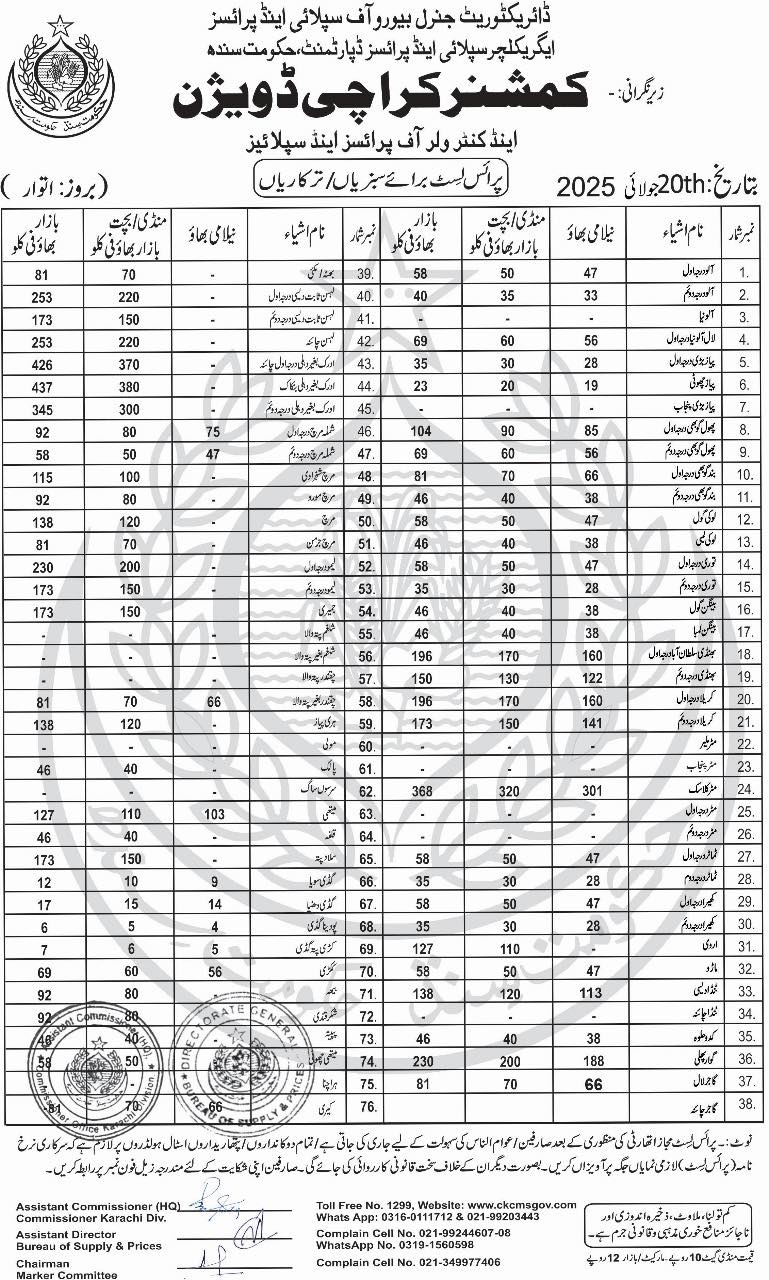 ڈائریکٹوریٹ جنرل بیورو آف سپلائی اینڈ پرائسز
ایگریکلچر سپلائی اینڈ پرائسز ڈپارٹمنٹ، حکومت سندھ
زیرنگرانی: - کمشنر کراچی ڈویژن
اینڈ کنٹرولر آف پرائسز اینڈ سپلائیز
بتاریخ: 20th جولائی 2025 پرائس لسٹ برائے سبزیاں/ترکاریاں (بروز: اتوار)
نمبر شمار نام اشیاء نیلامی بھاؤ منڈی/بچت بازار بھاؤ فی کلو بازار بھاؤ فی کلو نمبر شمار نام اشیاء نیلامی بھاؤ منڈی/بچت بازار بھاؤ فی کلو بازار بھاؤ فی کلو
1. آلو درجہ اول 47 50 58 39. بھٹہ/مکئی - 70 81
2. آلو درجہ دوئم 33 35 40 40. لہسن ثابت دیسی درجہ اول - 220 253
3. آلو نیا - - - 41. لہسن ثابت دیسی درجہ دوئم - 150 173
4. لال آلو نیا درجہ اول 56 60 69 42. لہسن چائنہ - 220 253
5. پیاز بڑی درجہ اول 28 30 35 43. ادرک بغیر دہلی درجہ اول چائنہ - 370 426
6. پیاز چھوٹی 19 20 23 44. ادرک بغیر دہلی بنکاک - 380 437
7. پیاز بڑی پنجاب - - - 45. ادرک بغیر دہلی درجہ دوئم - 300 345
8. پھول گوبھی درجہ اول 85 90 104 46. شملہ مرچ درجہ اول 75 80 92
9. پھول گوبھی درجہ دوئم 56 60 69 47. شملہ مرچ درجہ دوئم 47 50 58
10. بند گوبھی درجہ اول 66 70 81 48. مرچ شہزادی - 100 115
11. بند گوبھی درجہ دوئم 38 40 46 49. مرچ - 80 92
12. لوکی گول 47 50 58 50. مرچ - 120 138
13. لوکی لمبی 38 40 46 51. مرچ - 70 81
14. توری درجہ اول 47 50 58 52. لیمو درجہ اول - 200 230
15. توری درجہ دوئم 28 30 35 53. لیمو درجہ دوئم - 150 173
16. بینگن گول 38 40 46 54. - 150 173
17. بینگن لمبا 38 40 46 55. شلغم پتہ والا - - -
18. بھنڈی سلطان آباد درجہ اول 160 170 196 56. شلغم بغیر پتہ والا - - -
19. بھنڈی درجہ دوئم 122 130 150 57. چقندر پتہ والا - - -
20. کریلا درجہ اول 160 170 196 58. چقندر بغیر پتہ والا 66 70 81
21. کریلا درجہ دوئم 141 150 173 59. ہری پیاز - 120 138
22. مٹر ملیر - - - 60. مولی - - -
23. مٹر پنجاب - - - 61. پالک - 40 46
24. مٹر کلاسک 301 320 368 62. سرسوں ساگ - - -
25. مٹر درجہ اول - - - 63. میتھی 103 110 127
26. مٹر درجہ دوئم - - - 64. - 40 46
27. ٹماٹر درجہ اول 47 50 58 65. سلاد پتہ - 150 173
28. ٹماٹر درجہ دوم 28 30 35 66. گڈی سویا 9 10 12
29. کھیرا درجہ اول 47 50 58 67. گڈی دھنیا 14 15 17
30. کھیرا درجہ دوئم 28 30 35 68. پودینا گڈی 4 5 6
31. اروی - 110 127 69. کڑی پتہ گڈی 5 6 7
32. 47 50 58 70. ککڑی 56 60 69
33. ٹنڈا دیسی 113 120 138 71. - 80 92
34. ٹنڈا چائنہ - - - 72. شکرقندی - 80 92
35. کدو حلوہ 38 40 46 73. 40 46
36. گوار پھلی 188 200 230 74. میتھی چھوٹی 50 58
37. گاجر لال 66 70 81 75. ہرا چنا
38. گاجر چائنہ 76. کیری 66 70 81
نوٹ:- پرائس لسٹ مجاز اتھارٹی کی منظوری کے بعد صارفین/عوام الناس کی سہولت کے لیے جاری کی جاتی ہے/تمام دوکانداروں/پتھاریداروں اسٹال ہولڈروں پر لازم ہے کہ سرکاری نرخ
نامہ (پرائس لسٹ) لازمی نمایاں جگہ پر آویزاں کریں۔ بصورت دیگر ان کے خلاف سخت قانونی کارروائی کی جائے گی۔ صارفین اپنی شکایت کے لئے مندرجہ زیل فون نمبر پر رابطہ کریں۔
Assistant Commissioner (HQ)
Commissioner Karachi Div.
Assistant Director
Bureau of Supply & Prices
Chairman
Marker Committee
Toll Free No. 1299, Website: www.ckcmsgov.com
Whats App: 0316-0111712 & 021-99203443
Complain Cell No. 021-99244607-08
WhatsApp No. 0319-1560598
Complain Cell No. 021-349977406
کم تولنا، ملاوٹ، ذخیرہ اندوزی اور
ناجائز منافع خوری مذہبی و قانونی جرم ہے۔
قیمت منڈی گیٹ 10 روپے۔ مارکیٹ/بازار 12 روپے
Assistant Commissioner (HQ)
Commissioner Office Karachi Division
DIRECTORATE GENERAL
BUREAU OF SUPPLY & PRICES
حکومت سندھ